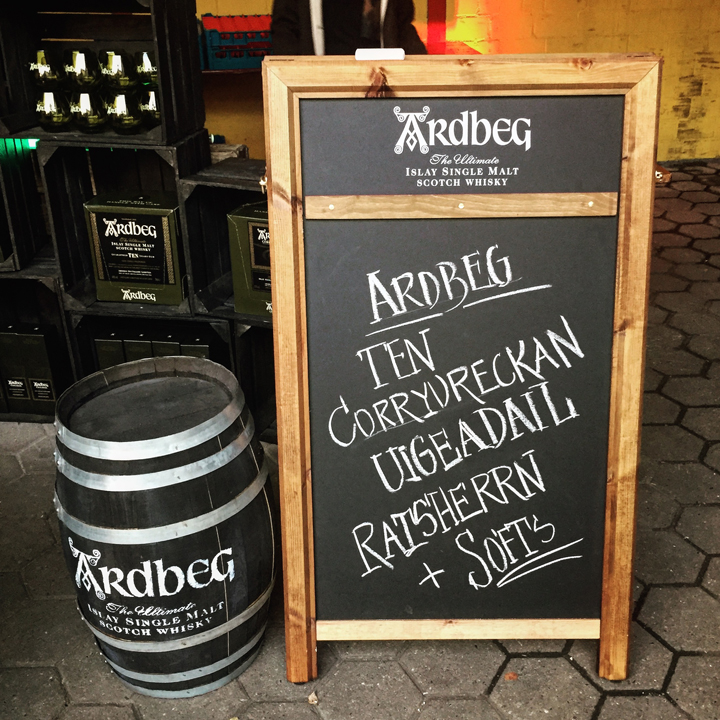 ARDBEG
The Ultimate
ISLAY SINGLE MALT
SCOTCH WHISKY
ARDBEG
TEN
CORRYVRECKAN
UIGEADAIL
RATSHERRN
+ SOFT'S
ARDBEG
The Ultimate
ISLAY SINGLE MALT
SCOTCH WHISKY
ARDBEG
ISLAY SINGLE MALT
SCOTCH WHISKY
TEN
ARDBEG